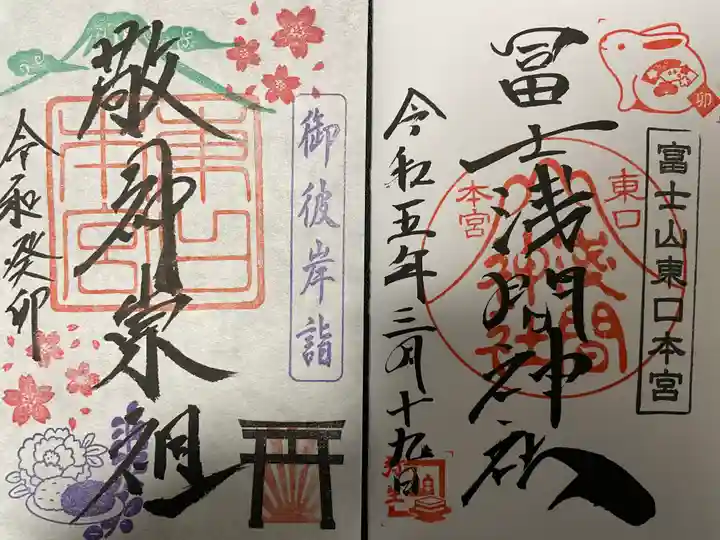 冨士浅間神社
令和五年三月十九日
富士山東口本宮
東口
本宮
浅間
神社
卯
弥生
御彼岸詣
敬神崇祖
令和癸卯
東口
本宮